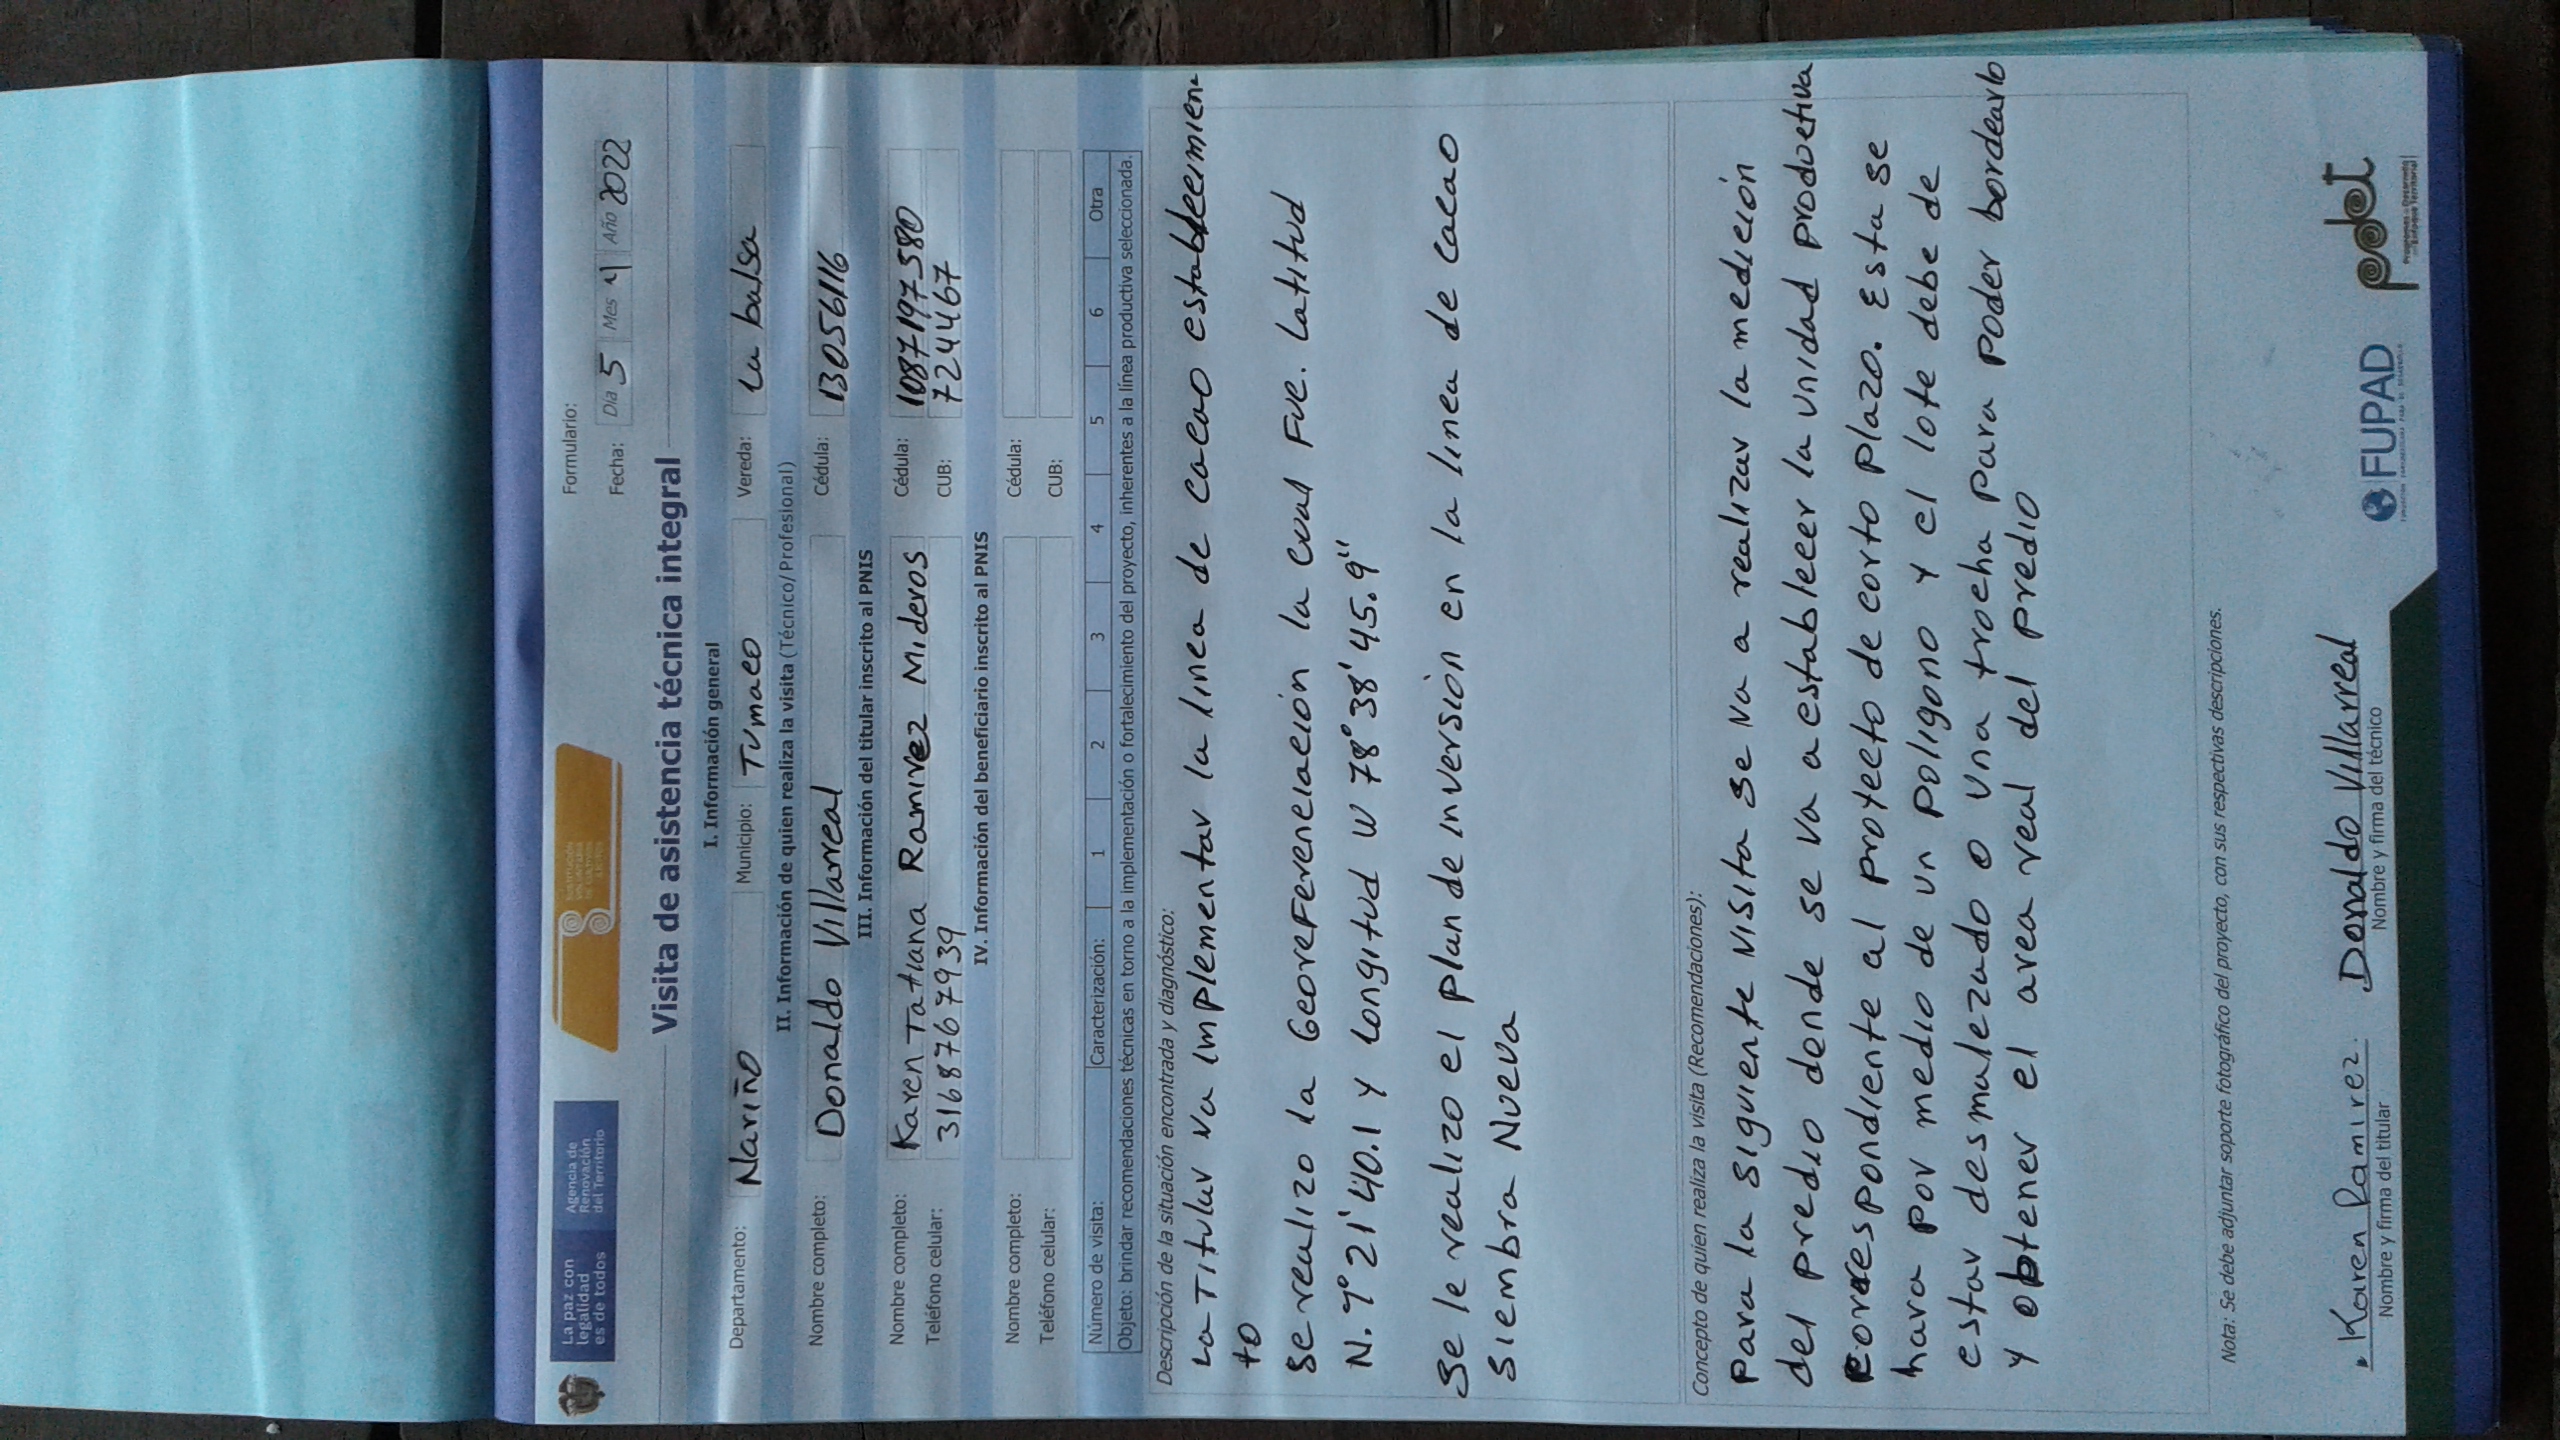 La paz con
legalidad
es de todos
Agencia de
Renovación
del Territorio
SUSTITUCIÓN
VOLUNTARIA
DE CULTIVOS
ILÍCITOS
Formulario:
Fecha: Día 5 Mes 4 Año 2022
Visita de asistencia técnica integral
I. Información general
Departamento: Nariño Municipio: Tumaco Vereda: La balsa
II. Información de quien realiza la visita (Técnico/Profesional)
Nombre completo: Donaldo Villarreal Cédula: 13056116
III. Información del titular inscrito al PNIS
Nombre completo: Karen Tatiana Ramirez Mideros Cédula: 1087197580
Teléfono celular: 3168767939 CUB: 724467
IV. Información del beneficiario inscrito al PNIS
Nombre completo: Cédula:
Teléfono celular: CUB:
Número de visita: Caracterización: 1 2 3 4 5 6 Otra
Objeto: brindar recomendaciones técnicas en torno a la implementación o fortalecimiento del proyecto, inherentes a la línea productiva seleccionada.
Descripción de la situación encontrada y diagnóstico:
La Titular va implementar la linea de cacao estableemien-
to
se realizo la Georeferenciación la cual Fue. Latitud
N. 1° 21' 40.1 y Longitud W 78° 38' 45.9"
Se le realizo el plan de inversion en la linea de cacao
Siembra Nueva
Concepto de quien realiza la visita (Recomendaciones):
Para la siguiente visita se va a realizar la medición
del predio dende se va a establecer la unidad productiva
correspondiente al proyecto de corto plazo. Esta se
hara por medio de un poligono y el lote debe de
estar desmalezado o una trocha para poder bordearlo
y obtener el area real del predio
Nota: Se debe adjuntar soporte fotográfico del proyecto, con sus respectivas descripciones.
Karen Ramirez. Donaldo Villarreal
Nombre y firma del titular Nombre y firma del técnico
FUPAD
pdet
Programas de Desarrollo
con Enfoque Territorial